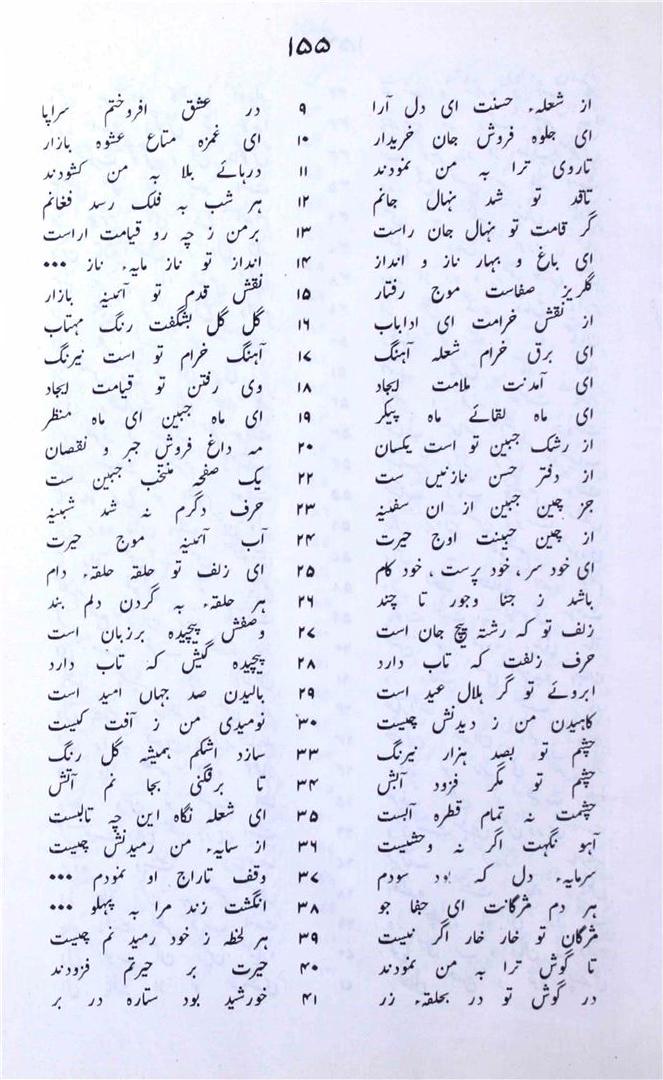 ۱۵۵
از شعلۂ حسنت ای دل آرا ۹ در عشق افروختم سراپا
ای جلوه فروش جان خریدار ۱۰ ای غمزه متاع عشوه بازار
تاروی ترا به من نمودند ۱۱ درہائے بلا به من کشودند
تاقد تو شد نہال جانم ۱۲ ہر شب به فلک رسد فغانم
گر قامت تو نہال جان راست ۱۳ برمن ز چه رو قیامت اراست
ای باغ و بہار ناز و انداز ۱۴ انداز تو ناز مایۂ ناز •••
گلریز صفاست موج رفتار ۱۵ نقش قدم تو آئینہ بازار
از نقش خرامت ای اداباب ۱۶ گل گل بشگفت رنگ مہتاب
ای برق خرام شعله آہنگ ۱۷ آہنگ خرام تو است نیرنگ
ای آمدنت ملامت ایجاد ۱۸ وی رفتن تو قیامت ایجاد
ای ماه لقائے ماه پیکر ۱۹ ای ماه جبین ای ماه منظر
از رشک جبین تو است یکسان ۲۰ مه داغ فروش جبر و نقصان
از دفتر حسن نازنیں ست ۲۲ یک صفحہ منتخب جبین ست
جز چین جبین از ان سفینہ ۲۳ حرف دگرم نہ شد شبینہ
از چین جبینت اوج حیرت ۲۴ آب آئینہ موج حیرت
ای خود سر، خود پرست، خود کام ۲۵ ای زلف تو حلقہ حلقۂ دام
باشد ز جفا وجور تا چند ۲۶ ہر حلقۂ به گردن دلم بند
زلف تو که رشتہ پیچ جان است ۲۷ وصفش پیچیده برزبان است
حرف زلفت کہ تاب دارد ۲۸ پیچیده گیش کہ تاب دارد
ابروئے تو گر ہلال عید است ۲۹ بالیدن صد جہاں امید است
کاہیدن من ز دیدنش چیست ۳۰ نومیدی من ز آفت کیست
چشم تو بصد ہزار نیرنگ ۳۳ سازد اشکم ہمیشہ گل رنگ
چشم تو مگر فزود آبش ۳۴ تا برفگنی بجا نم آتش
چشمت نہ تمام قطره آبست ۳۵ ای شعله نگاه این چه تابست
آہو نگہت اگر نہ وحشیست ۳۶ از سایۂ من رمیدنش چیست
سرمایۂ دل که بود سودم ۳۷ وقف تاراج او نمودم •••
ہر دم مژگانت ای جفا جو ۳۸ انگشت زند مرا به پہلو •••
مژگان تو خار خار اگر نیست ۳۹ ہر لحظہ ز خود رمید نم چیست
تا گوش ترا به من نمودند ۴۰ حیرت بر حیرتم فزودند
در گوش تو در بحلقۂ زر ۴۱ خورشید بود ستاره در بر